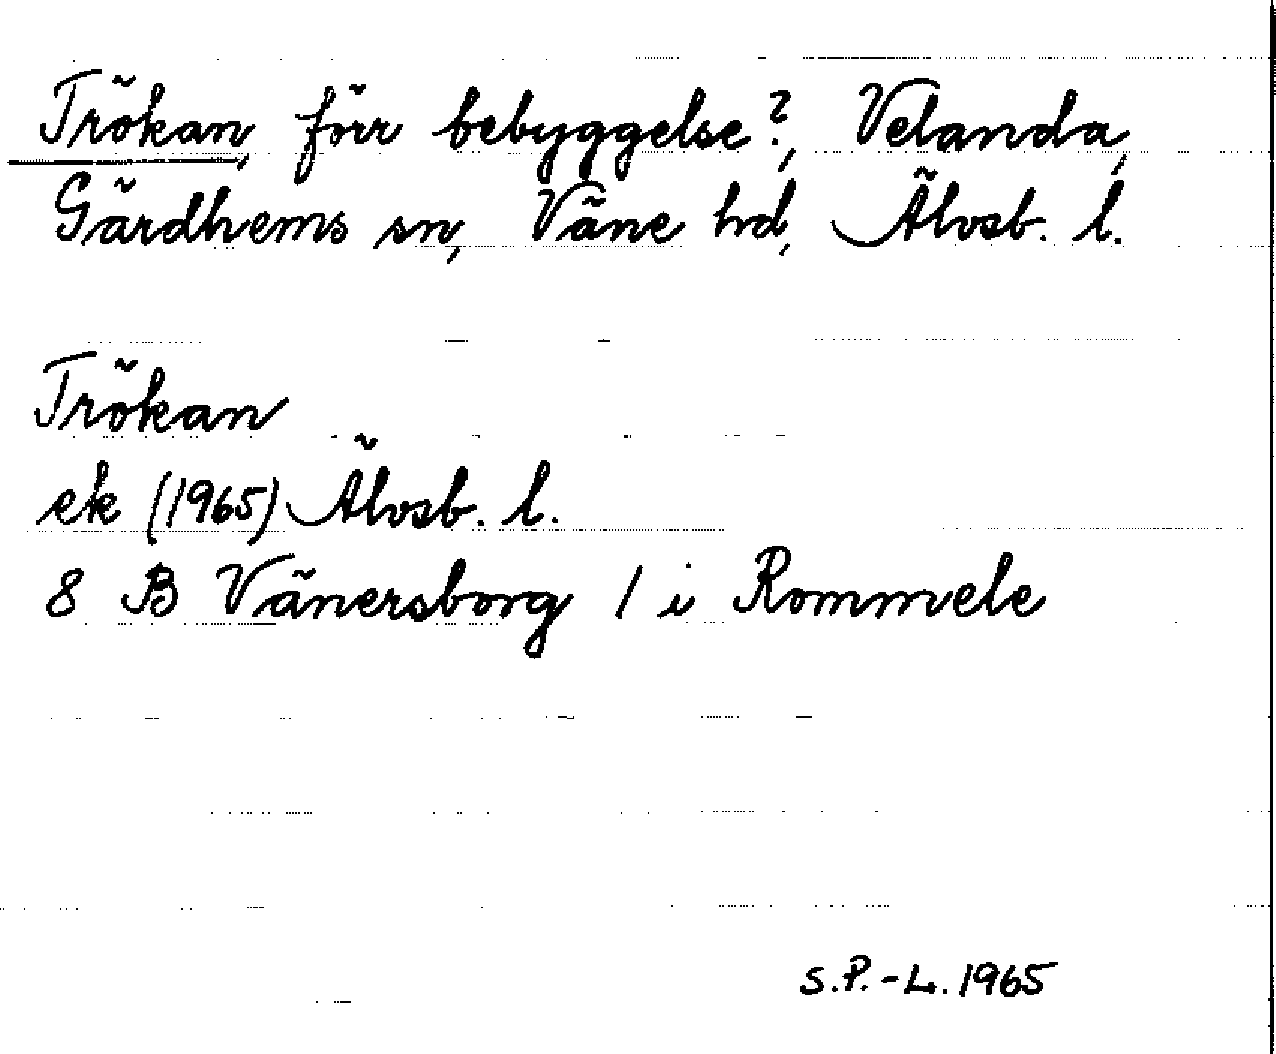 Trökan, förr bebyggelse?, Velanda,
Gärdhems sn, Väne hd, Älvsb. l.
Trökan
ek (1965) Älvsb. l.
8 B Vänersborg 1 i Rommele
S.P.-L. 1965